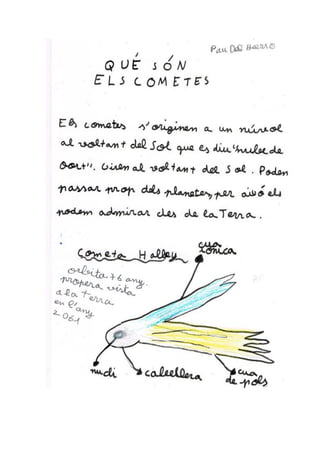 Pau Del Barrio
QUÉ SÓN
ELS COMETES
Els cometes s'originen a un núvol
al voltant del Sol que es diu "nuble de
Oort". Giren al voltant del Sol. Poden
passar prop dels planetes, per aixó els
podem admirar des de la Terra.
Cometa Halley
cua
iónica
orbita 76 any.
propera vista
a la terra
en l'any
2061
nucli
cabellera
cua
de pols